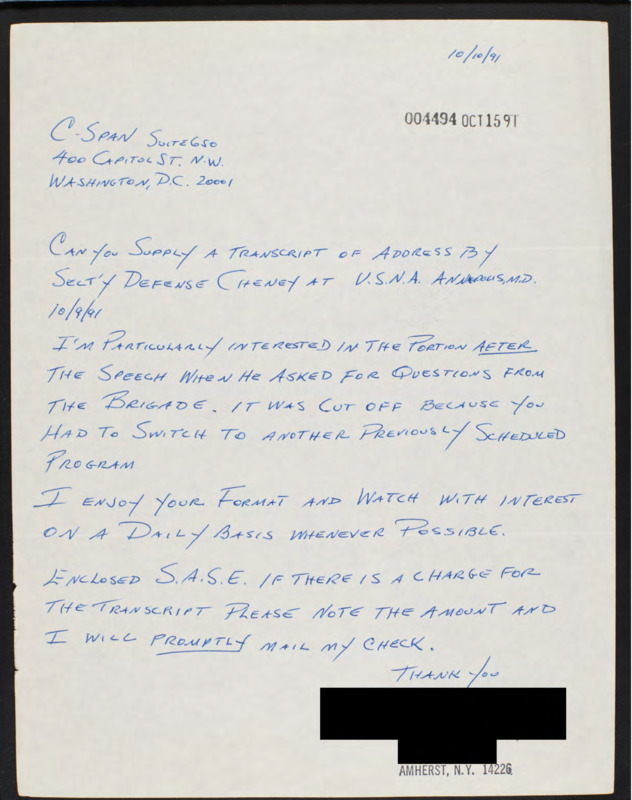 10/10/91
004494 OCT 15 91
C-SPAN SUITE 650
400 CAPITOL ST. N.W.
WASHINGTON, D.C. 20001
CAN YOU SUPPLY A TRANSCRIPT OF ADDRESS BY
SECT'Y DEFENSE CHENEY AT U.S.N.A. ANNAPOLIS, MD.
10/9/91
I'M PARTICULARLY INTERESTED IN THE PORTION AFTER
THE SPEECH WHEN HE ASKED FOR QUESTIONS FROM
THE BRIGADE. IT WAS CUT OFF BECAUSE YOU
HAD TO SWITCH TO ANOTHER PREVIOUSLY SCHEDULED
PROGRAM
I ENJOY YOUR FORMAT AND WATCH WITH INTEREST
ON A DAILY BASIS WHENEVER POSSIBLE.
ENCLOSED S.A.S.E. IF THERE IS A CHARGE FOR
THE TRANSCRIPT PLEASE NOTE THE AMOUNT AND
I WILL PROMPTLY MAIL MY CHECK.
THANK YOU
AMHERST, N.Y. 14226